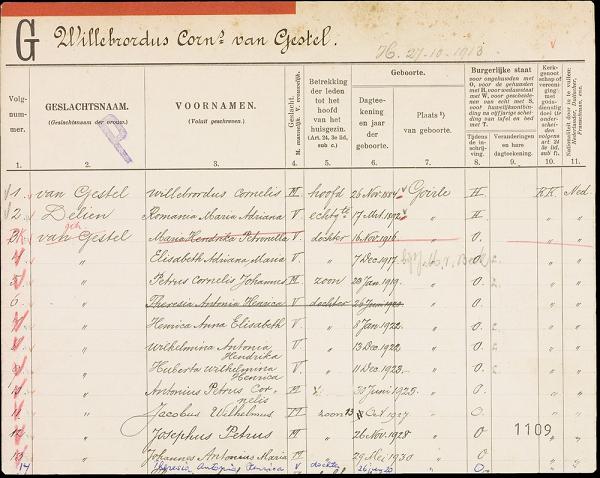 G Willebrordus Corns. van Gestel.
H. 27-10-1913
Volgnummer. GESLACHTSNAAM. (Geslachtsnaam der vrouw.) VOORNAMEN. (Voluit geschreven.) Geslacht. M. mannelijk. V. vrouwelijk. Betrekking der leden tot het hoofd van het huisgezin. (Art. 24, 3e lid, sub c.) Geboorte. Dagteekening en jaar der geboorte. Plaats 1) van geboorte. Burgerlijke staat Tijdens de inschrijving. Veranderingen en hare dagteekening.
1. 2. 3. 4. 5. 6. 7. 8. 9. 10. 11.
1. van Gestel Willebrordus Cornelis M hoofd 26 Nov. 1884 Goirle H KK Ned.
2. Delien Romania Maria Adriana V. echtgte 17 Mrt. 1892 " H " "
3 van Gestel Maria Hendrika Petronella V. dochter 16 Nov. 1916 " O. " "
4 " Elisabeth Adriana Maria V " 7 Dec. 1917 " O. " "
5 " Petrus Cornelis Johannes M zoon 23 Jan. 1919. " O. " "
6 " Theresia Antonia Henrica V dochter 26 Juni " O. " "
" Henrica Anna Elisabeth V. " 8 Jan. 1922. " O. " "
" Wilhelmina Antonia Hendrika V. " 13 Dec. 1922 " O. " "
" Huberta Wilhelmina Henrica V. " 11 Dec. 1923. " O. " "
" Antonius Petrus Cornelis M 30 Juni 1925. " O. " "
11 " Jacobus Wilhelmus M zoon 13 Oct. 1927 " O. " "
12 " Josephus Petrus M " 26 Nov. 1928 " O. 1109
13 " Johannes Antonius Maria M " 29 Mei 1930 " O. " "
14 " Theresia Antonia Henrica V dochter 26 " O.